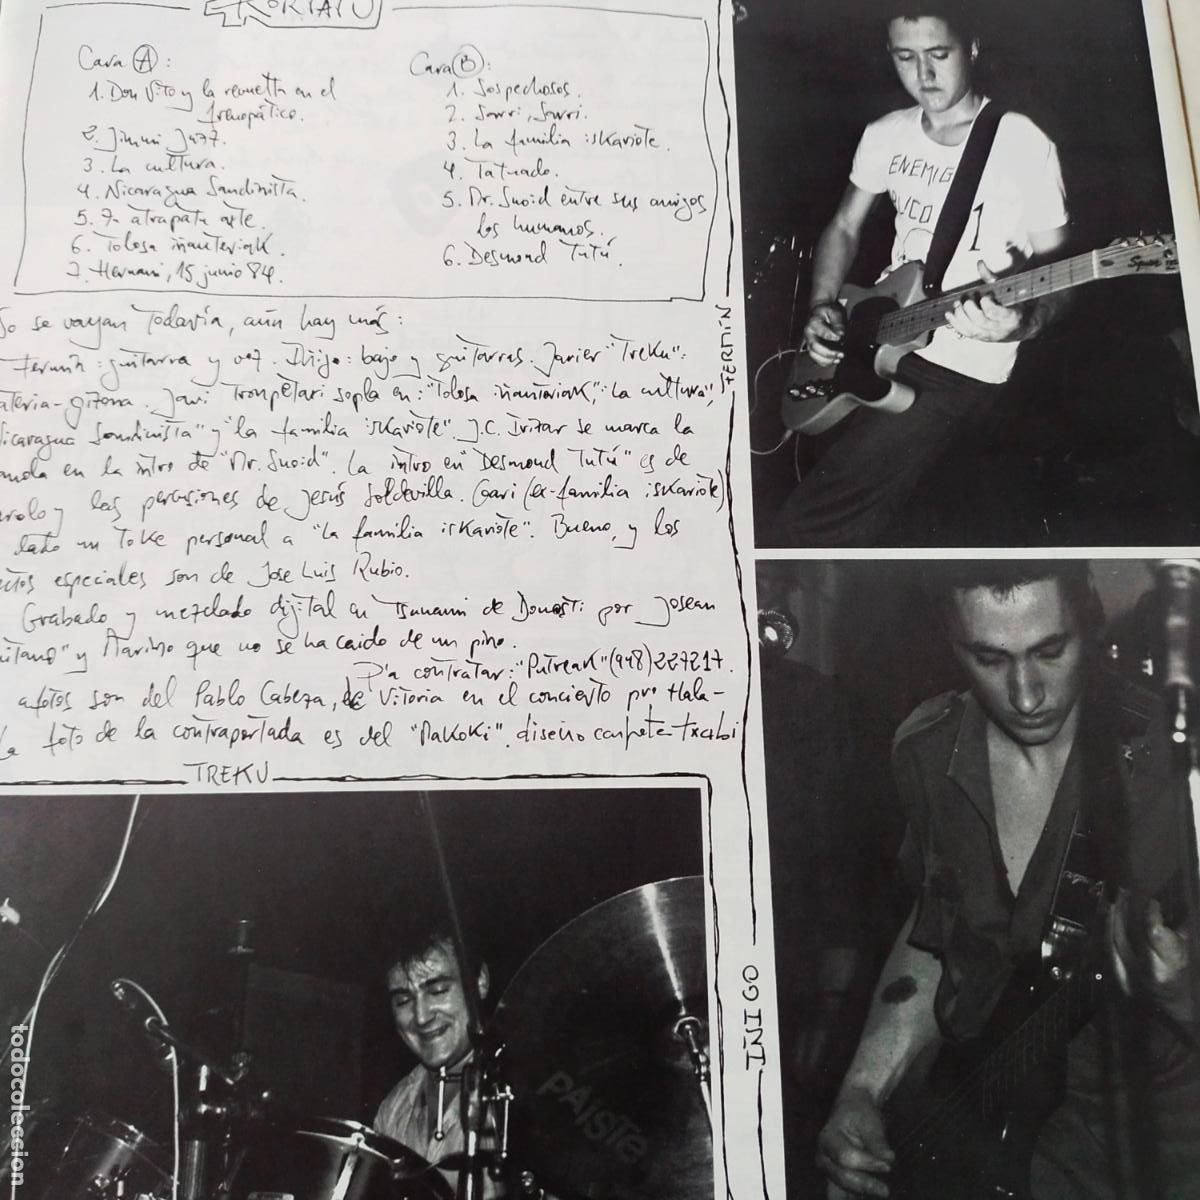 KORTATU
Cara A:
1. Don Vito y la revuelta en el
frenopático.
2. Jimmi Jazz.
3. La cultura.
4. Nicaragua Sandinista.
5. Za atrapatu arte.
6. Tolosa iñauteriak.
7. Hernani, 15 junio 84.
Cara B:
1. Sospechosos.
2. Sarri, Sarri.
3. La familia iskariote.
4. Tatuado.
5. Mr. Snoid entre sus amigos
los humanos.
6. Desmond Tutú.
No se vayan Todavía, aún hay más:
Fermín: guitarra y voz. Iñigo: bajo y guitarras. Javier "Treku":
Javi Tronpetari sopla en: "Tolosa iñauteriak", "La cultura",
Nicaragua Sandinista" y "la familia iskariote". J.C. Irizar se marca la
en la intro de "Mr. Snoid". La intro en "Desmond Tutú" es de
y las percusiones de Jesús Soldevilla. Gari (ex-familia iskariote)
dado un Toke personal a "La familia iskariote". Bueno, y los
especiales son de Jose Luis Rubio.
Grabado y mezclado dijital en Tsunami de Donosti por Josean
y Marino que no se ha caido de un pino.
P'a contratar: "Putreak" (948) 227217.
afotos son del Pablo Cabeza, de Vitoria en el concierto pro Hala-
La foto de la contraportada es del "Makoki". diseño carpeta Txabi
FERMÍN
TREKU
IÑIGO
ENEMIG
1
PAiSTe
todocoleccion